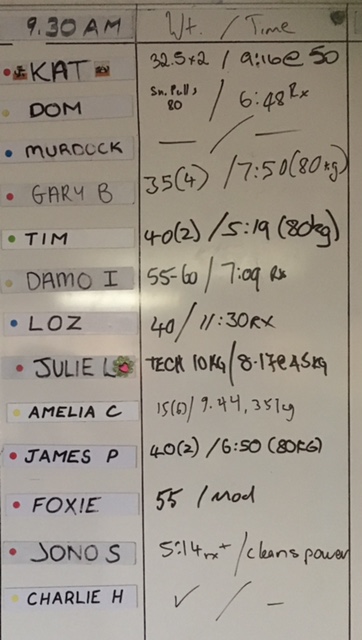 9.30 AM Wt. / Time
KAT 32.5x2 / 9:16@ 50
DOM Sn. Pulls 80 / 6:48 Rx
MURDOCK — / —
GARY B 35(4) / 7:50(80kg)
TIM 40(2) / 5:19 (80kg)
DAMO I 55-60 / 7:09 Rx
LOZ 40 / 11:30RX
JULIE L TECH 10KG / 8.17@45KG
AMELIA C 15(6) / 9.44, 35kg
JAMES P 40(2) / 6:50 (80KG)
FOXIE 55 / Mod
JONO S 5:14 rx+ / cleans power
CHARLIE H ✓ / —